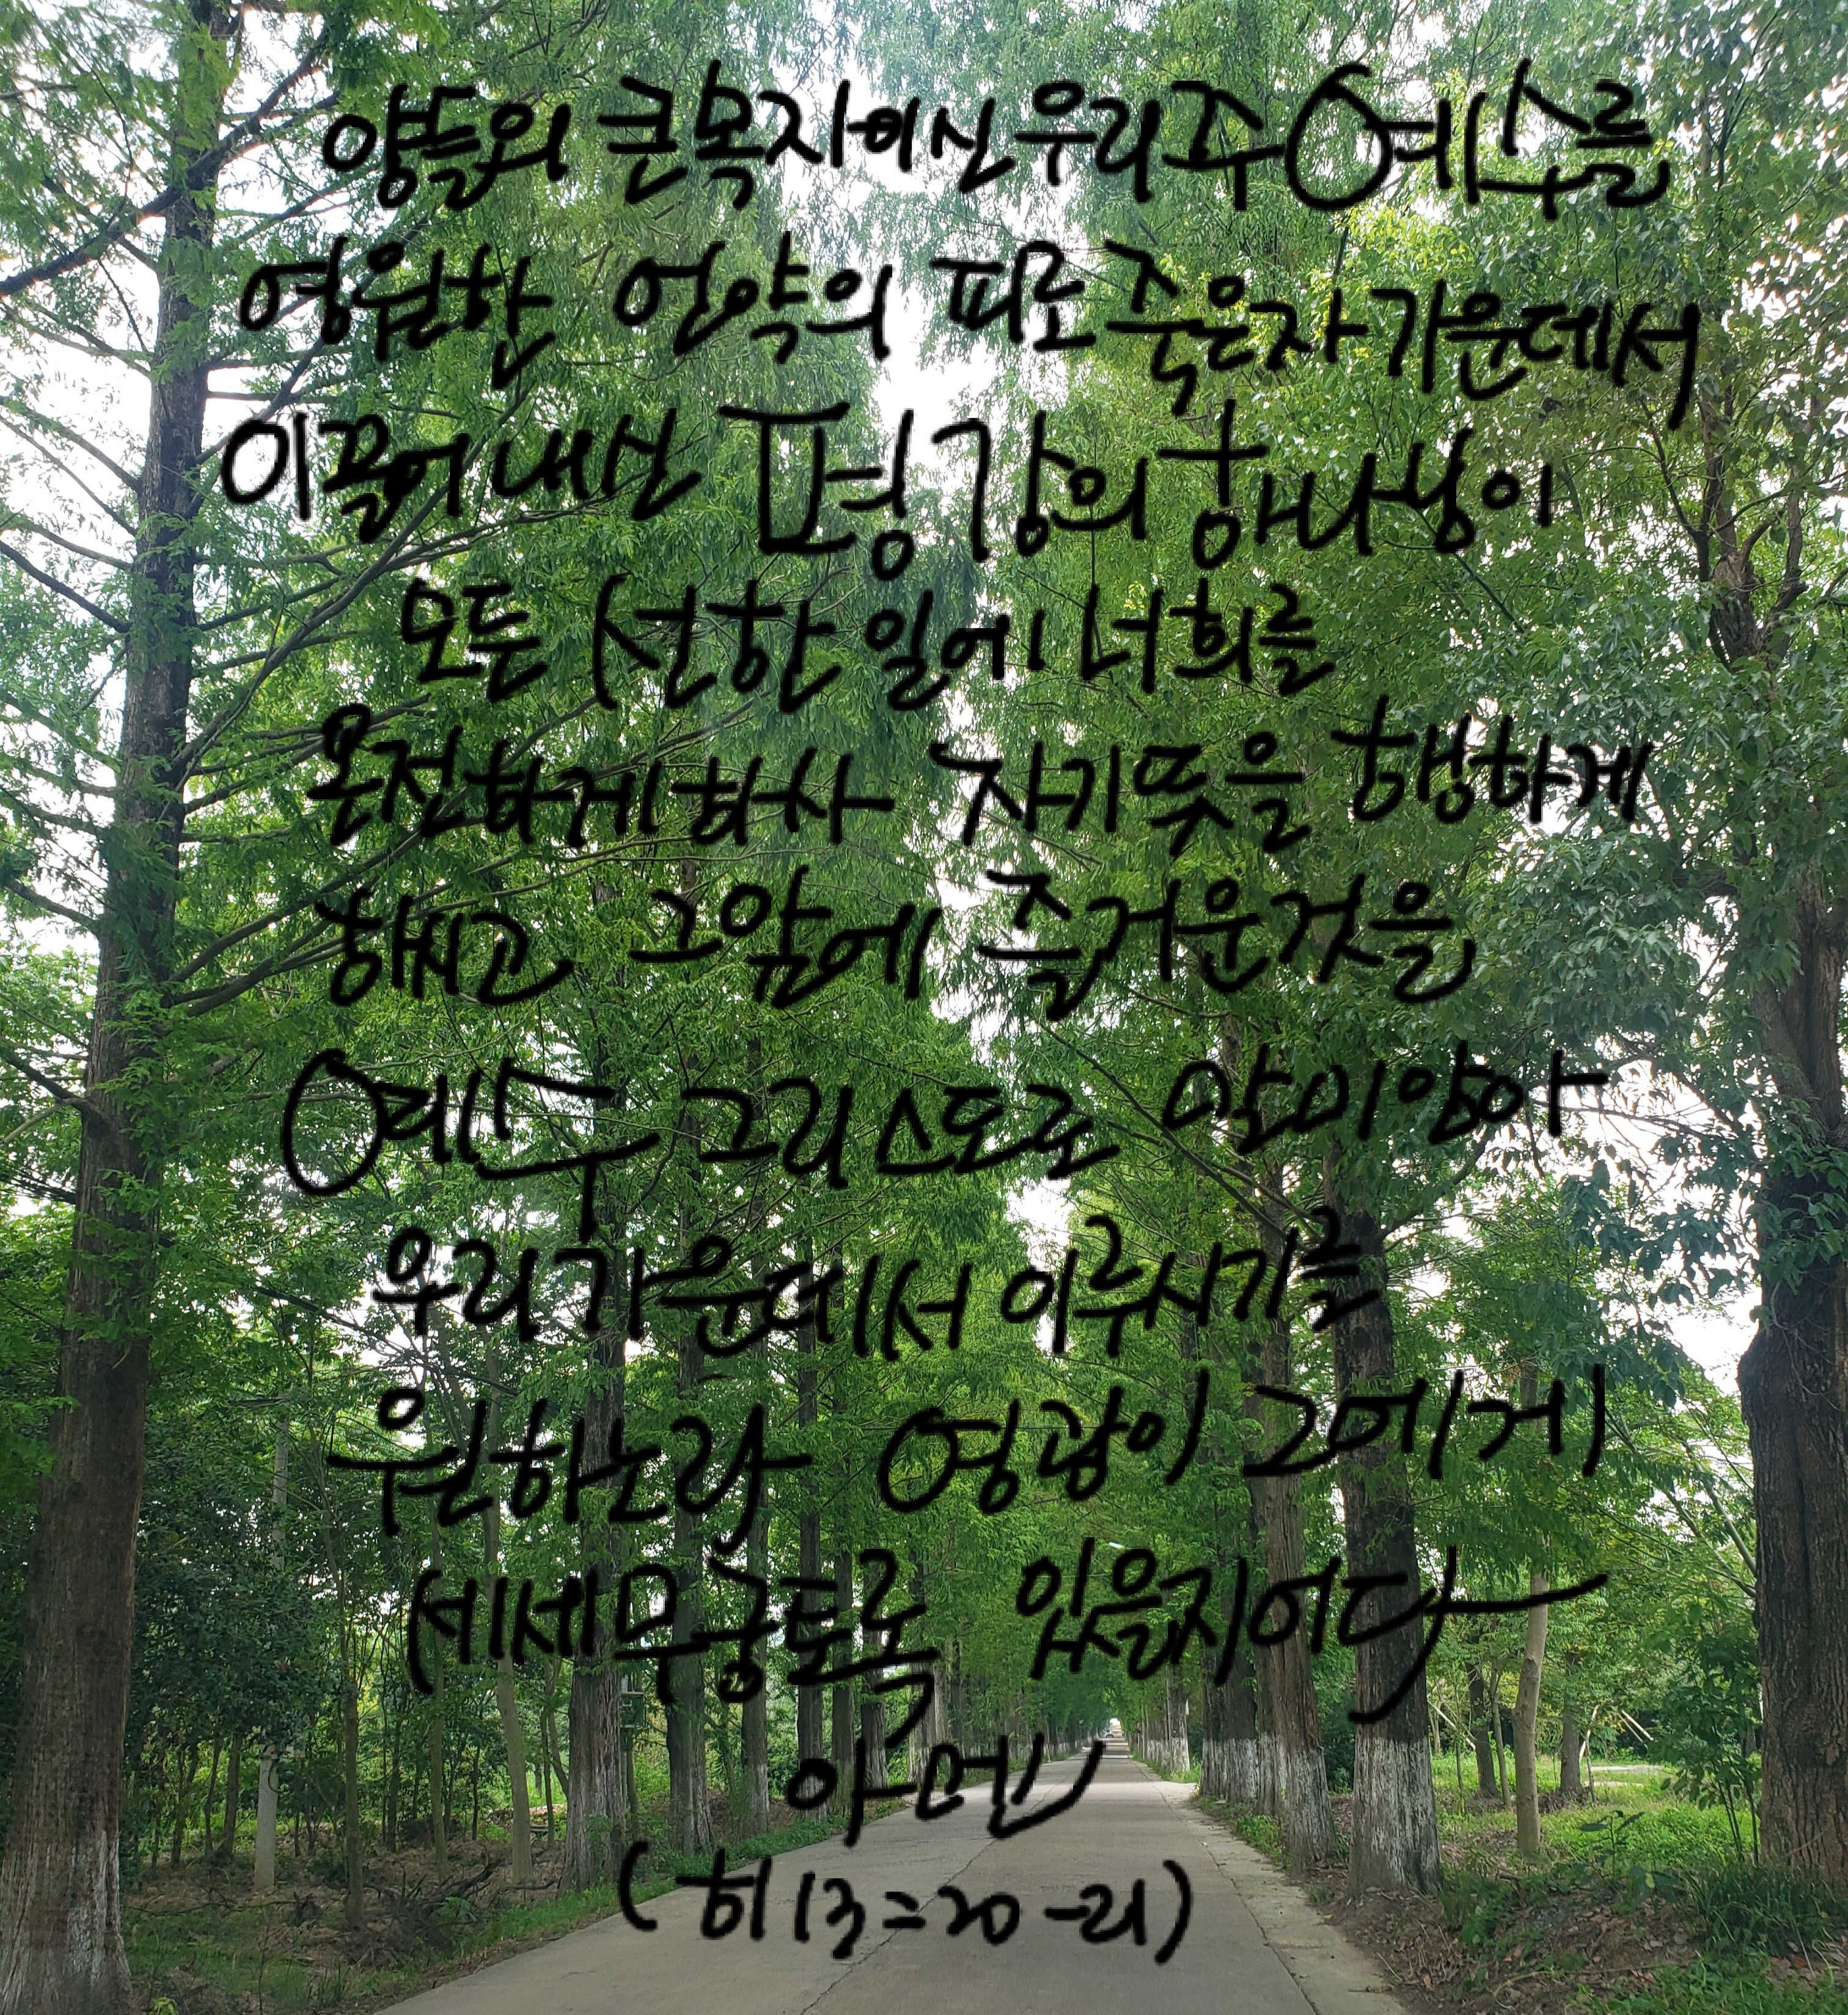 양들의 큰목자이신 우리주 예수를
영원한 언약의 피로 죽은자 가운데서
이끌어 내신 평강의 하나님이
모든 선한 일에 너희를
온전하게 하사 자기뜻을 행하게
하시고 그앞에 즐거운것을
예수 그리스도로 말미암아
우리 가운데서 이루시기를
원하노라 영광이 그에게
세세무궁토록 있을지어다
아멘
(히 13=20-21)